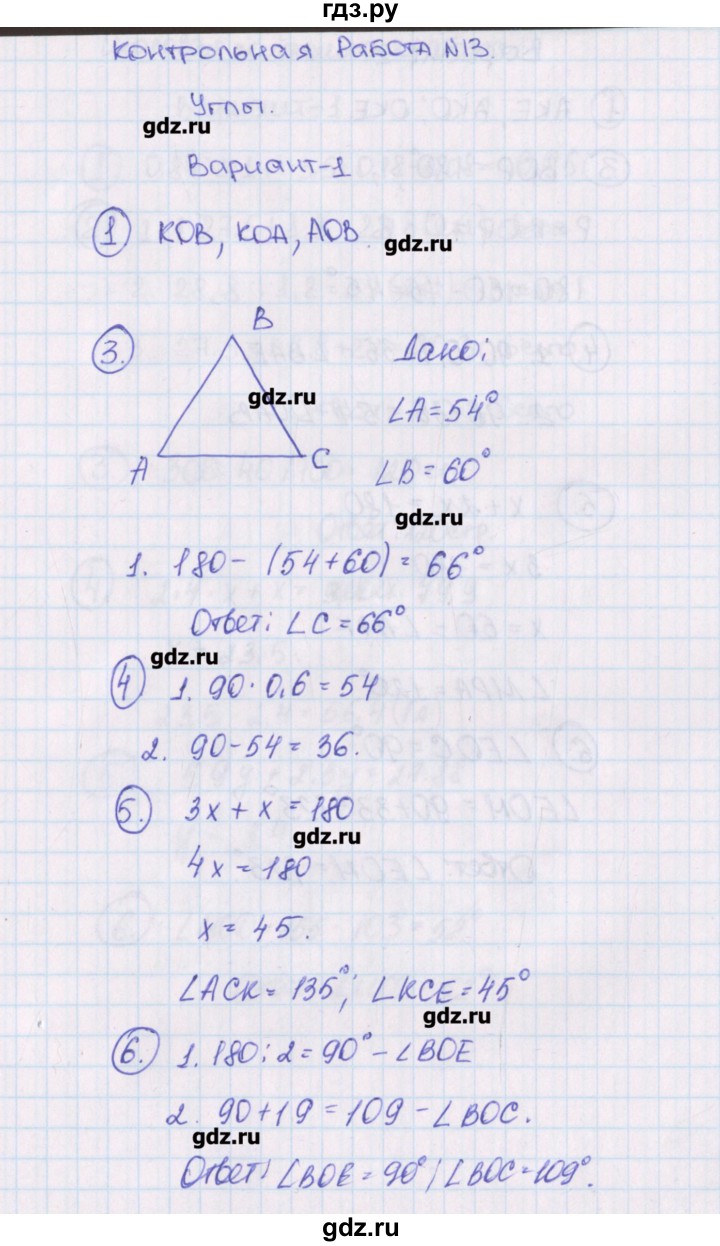 гдз.ру
Контрольная Работа N13.
Углы.
gdz.ru
Вариант-1
1 KOB, KOA, AOB
gdz.ru
3. B
A
C
gdz.ru
Дано:
∠A=54°
∠B=60°
gdz.ru
1. 180-(54+60)=66°
Ответ: ∠C=66°
gdz.ru
4 1. 90·0,6=54
2. 90-54=36.
5. 3x+x=180
gdz.ru
4x=180
x=45.
∠ACK=135°; ∠KCE=45°
gdz.ru
6. 1. 180:2=90°-∠BOE
2. 90+19=109-∠BOC.
gdz.ru
Ответ: ∠BOE=90°; ∠BOC=109°.
gdz.ru